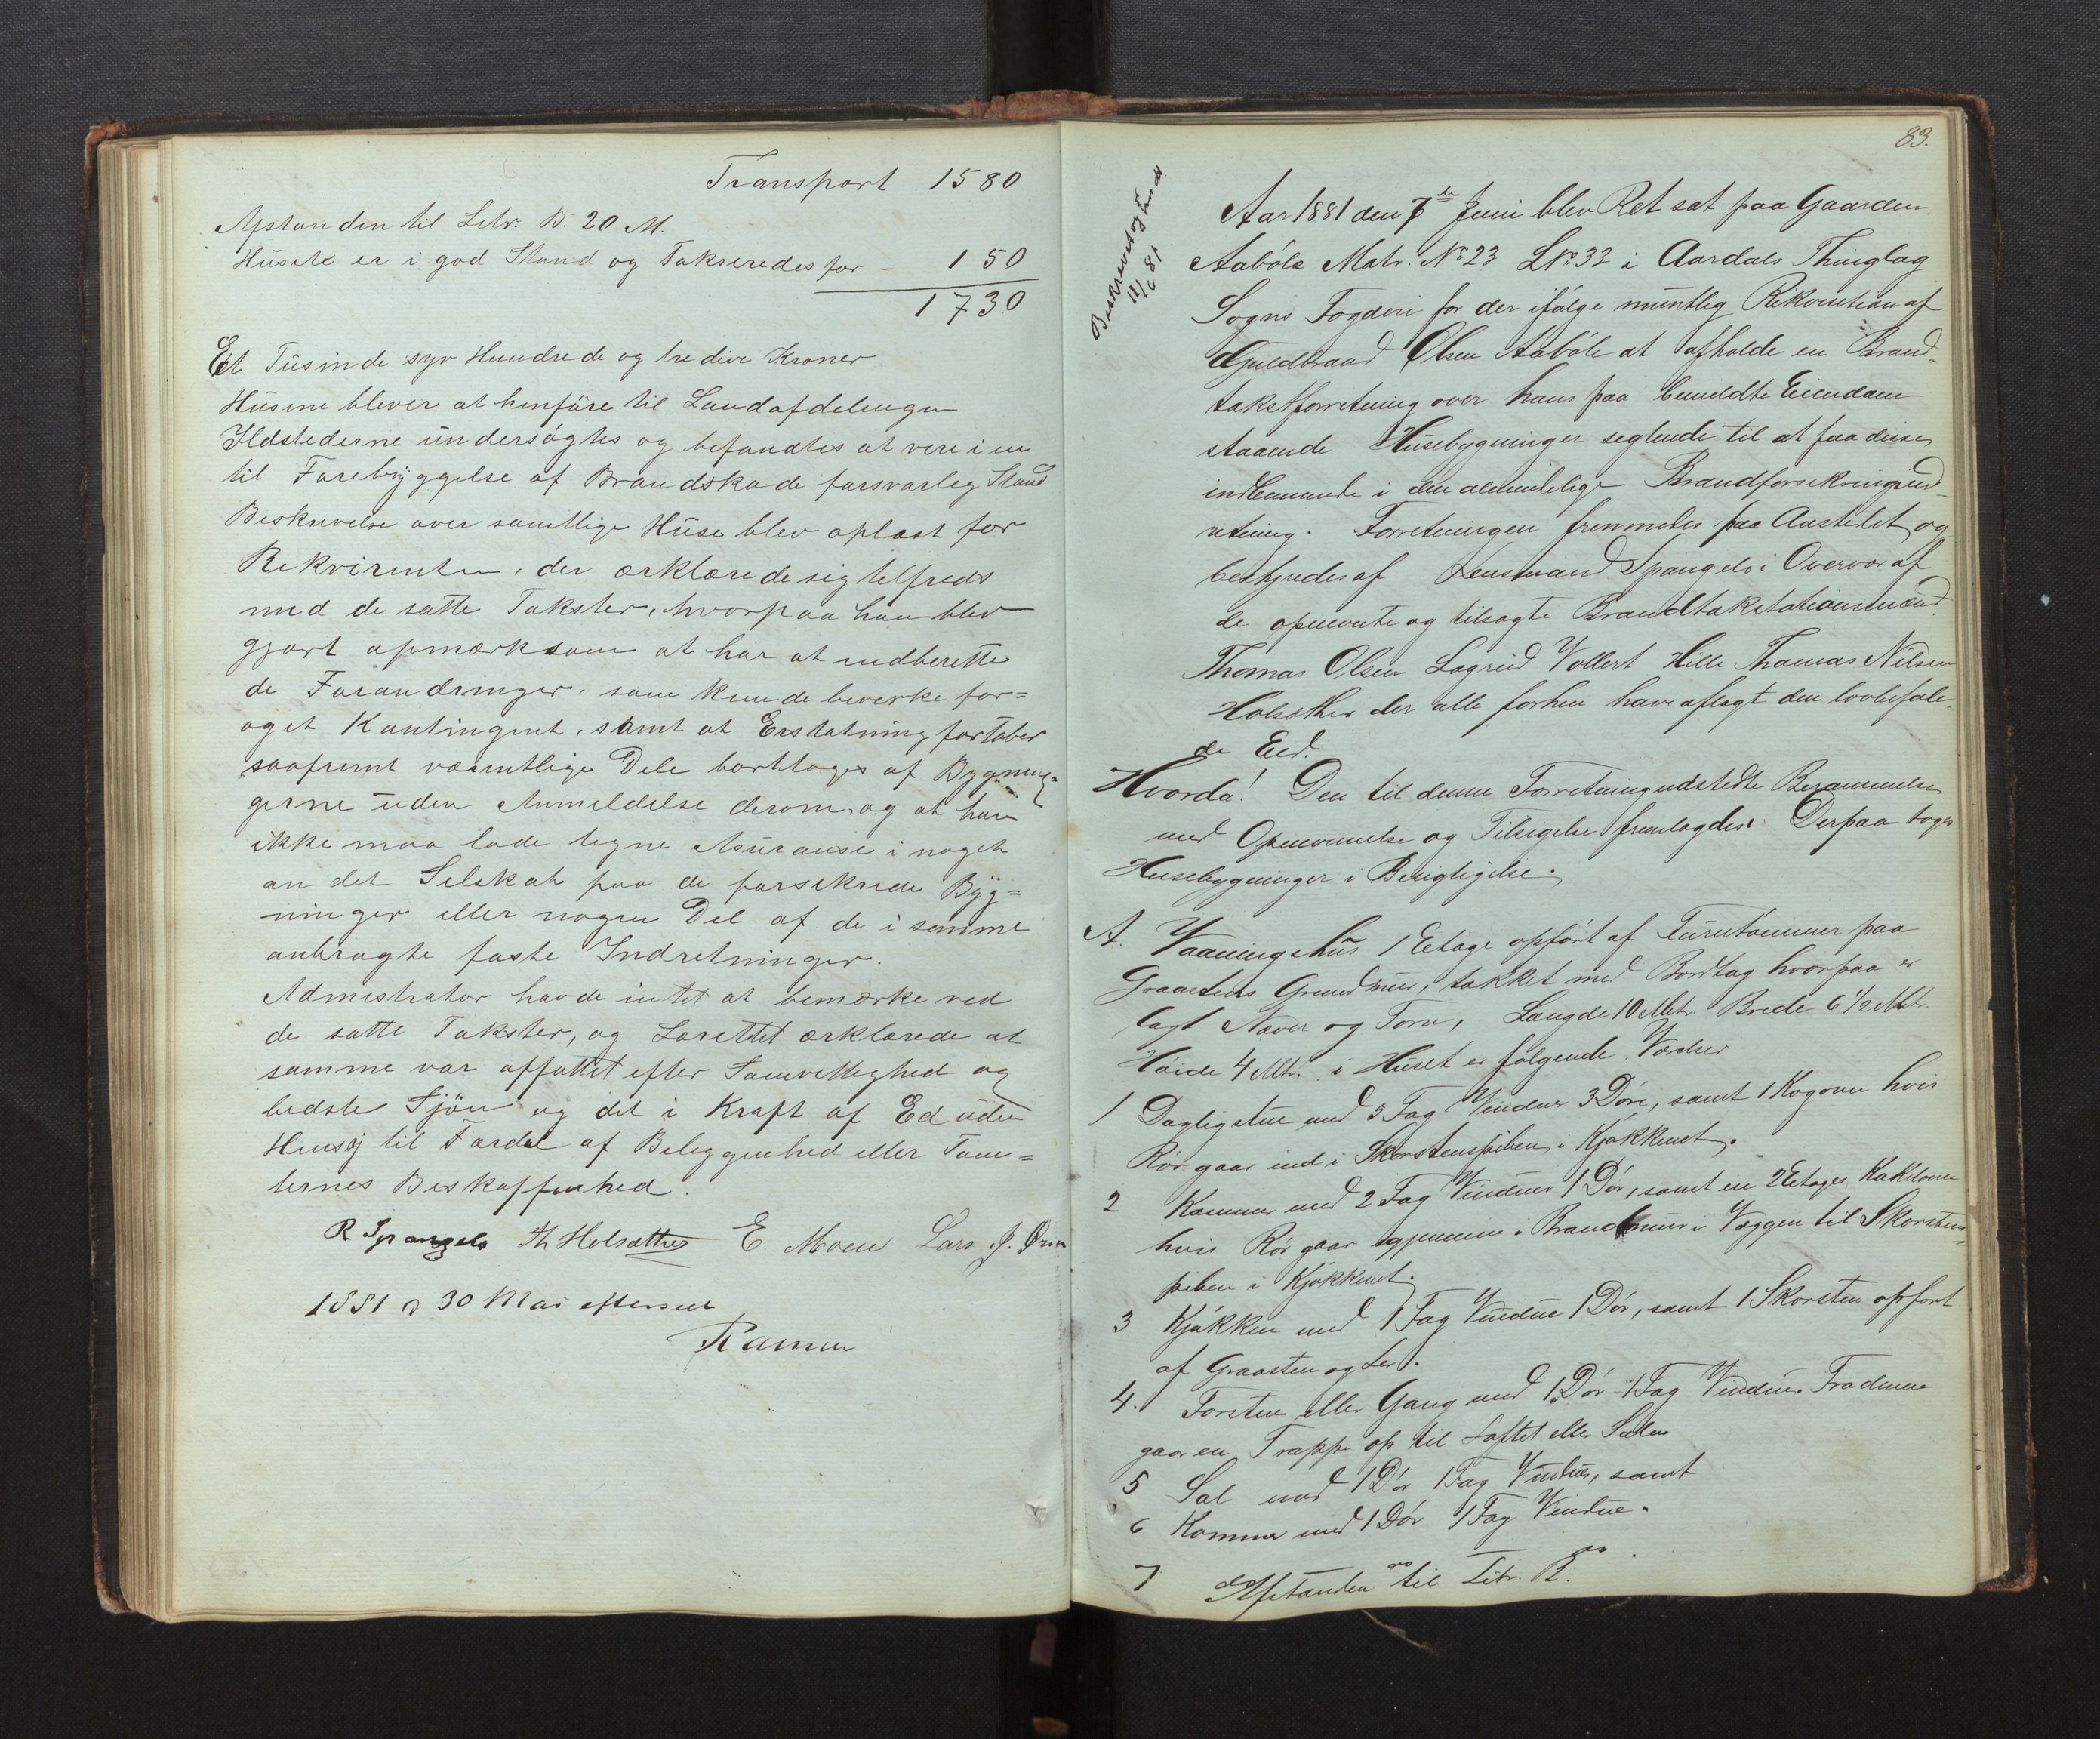 Transport 1580
Afstanden til Litr. B. 20 M.
Husete er i god Stand og Takseredes for - 150
1730
Et Tusinde syv Hundrede og tredive Kroner
Husene bliver at henføre til Landafdelingen
Ildstederne undersøgtes og befandtes at vere i en
til Forebyggelse af Brandskade forsvarleg Stand
Beskrivelse over samtlige Huse blev oplæst for
Rekvirenten, der ærklærede sig tilfreds
med de satte Takster, hvorpaa han blev
gjort opmærksom at har at indberette
de Forandringer, som kunde bevirke for=
øget Kontingent, samt at Erstatning fortabes
saafremt væsentlige Dele borttages af Bygnin=
gerne uden Anmeldelse derom, og at han
ikke maa lade tegne Asuranse i noget
an det Selskab paa de forsikrede Byg=
ninger eller nogen Del af de i samme
anbragte faste Indretninger.
Admistrator havde intet at bemærke ved
de satte Takster, og Lorettet ærklærede at
samme var affattet efter Samvettighed og
bedste Skjøn og det i Kraft af Ed uden
Hensyn til Fordel af Beliggenhed eller Tom=
ternes Beskaffenhed.
R Spangelo Th Holsæther E. Moen Lars J. Øren
1881 d 30 Mai efterseet
83.
Beskrevet og sendt
11/6 81
Aar 1881 den 7de Juni blev Ret sat paa Gaarden
Aabøle Matr. No 23 LNo 33 i Aardals Thinglag
Sogns Fogderi for der ifølge muntlig Rikvisition af
Guldbrand Olsen Aabøle at afholde en Brand-
takstforretning over hans paa bemeldte Eiendom
staaende Husebygninger sigtende til at faa disse
indlemmede i den almindelige Brandforsikringsind-
retning. Forretningen fremmedes paa Aastedet og
bestyredes af Lensmand Spangelo i Overvær af
de opnevnte og tilsagte Brandtakstationsmænd
Thomas Olsen Lægreid Vollert Hille Thomas Nilsen
Holsæther der alle forhen have aflagt den lovbefale-
de Eed.
Hvorda! Den til denne Forretning udstedte Berammelse
med Opnevnelse og Tilsigelse fremlagdes. Derpaa toges
Husebygninger i Besigtigelse.
A. Vaaningshus 1 Etage opført af Furutømmer paa
Graastens Grundmur, takket med Bordtag hvorpaa er
lagt Næver og Torv, Længde 10 Mtr. Brede 6 1/2 Mtr.
Høide 4 Mtr. i Huset er følgende Værelser
1 Dagligstue med 3 Fag Vinduer 3 Døre, samt 1 Kogovn hvis
Rør gaar ind i Skorstenspiben i Kjøkkenet.
2 Kammer med 2 Fag Vinduer 1 Dør, samt en 2 Etages Kakkelovn
hvis Rør gaar igjennem i Brandmur i Væggen til Skorstens=
piben i Kjøkkenet.
3 Kjøkken med 1 Fag Vindue 1 Dør, samt 1 Skorsten opført
af Graasten og Ler.
4. Forstue eller Gang med 1 Dør 1 Fag Vindue. Fra denne
gaar en Trappe op til Loftet eller Salen
5 Sal med 1 Dør 1 Fag Vindue, samt
6 Kammer med 1 Dør 1 Fag Vindue.
7 do do do
Afstanden til Litr. B.